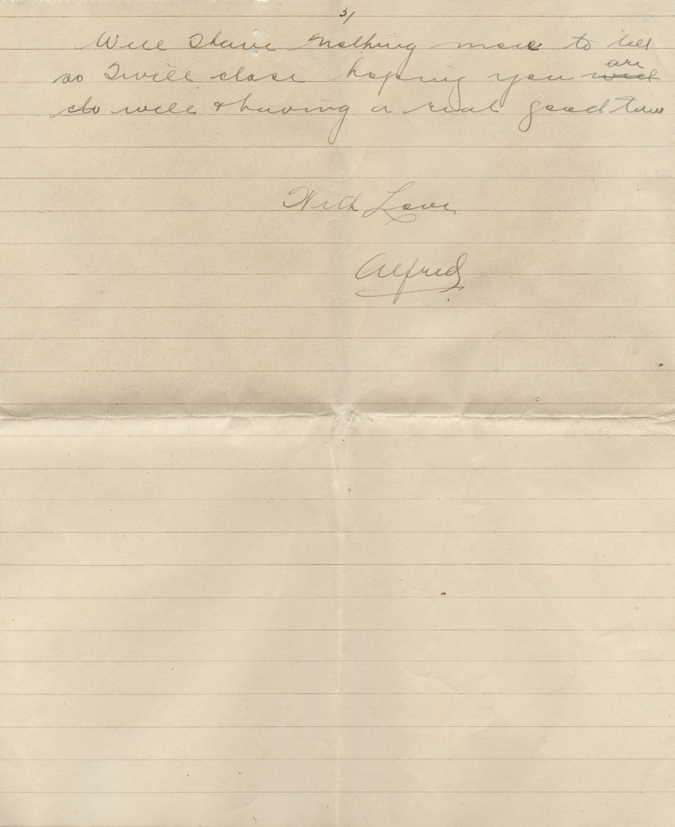 5/
Well I have nothing more to tell
so I will close hoping you are
do well & having a real good time
With Love
Alfred